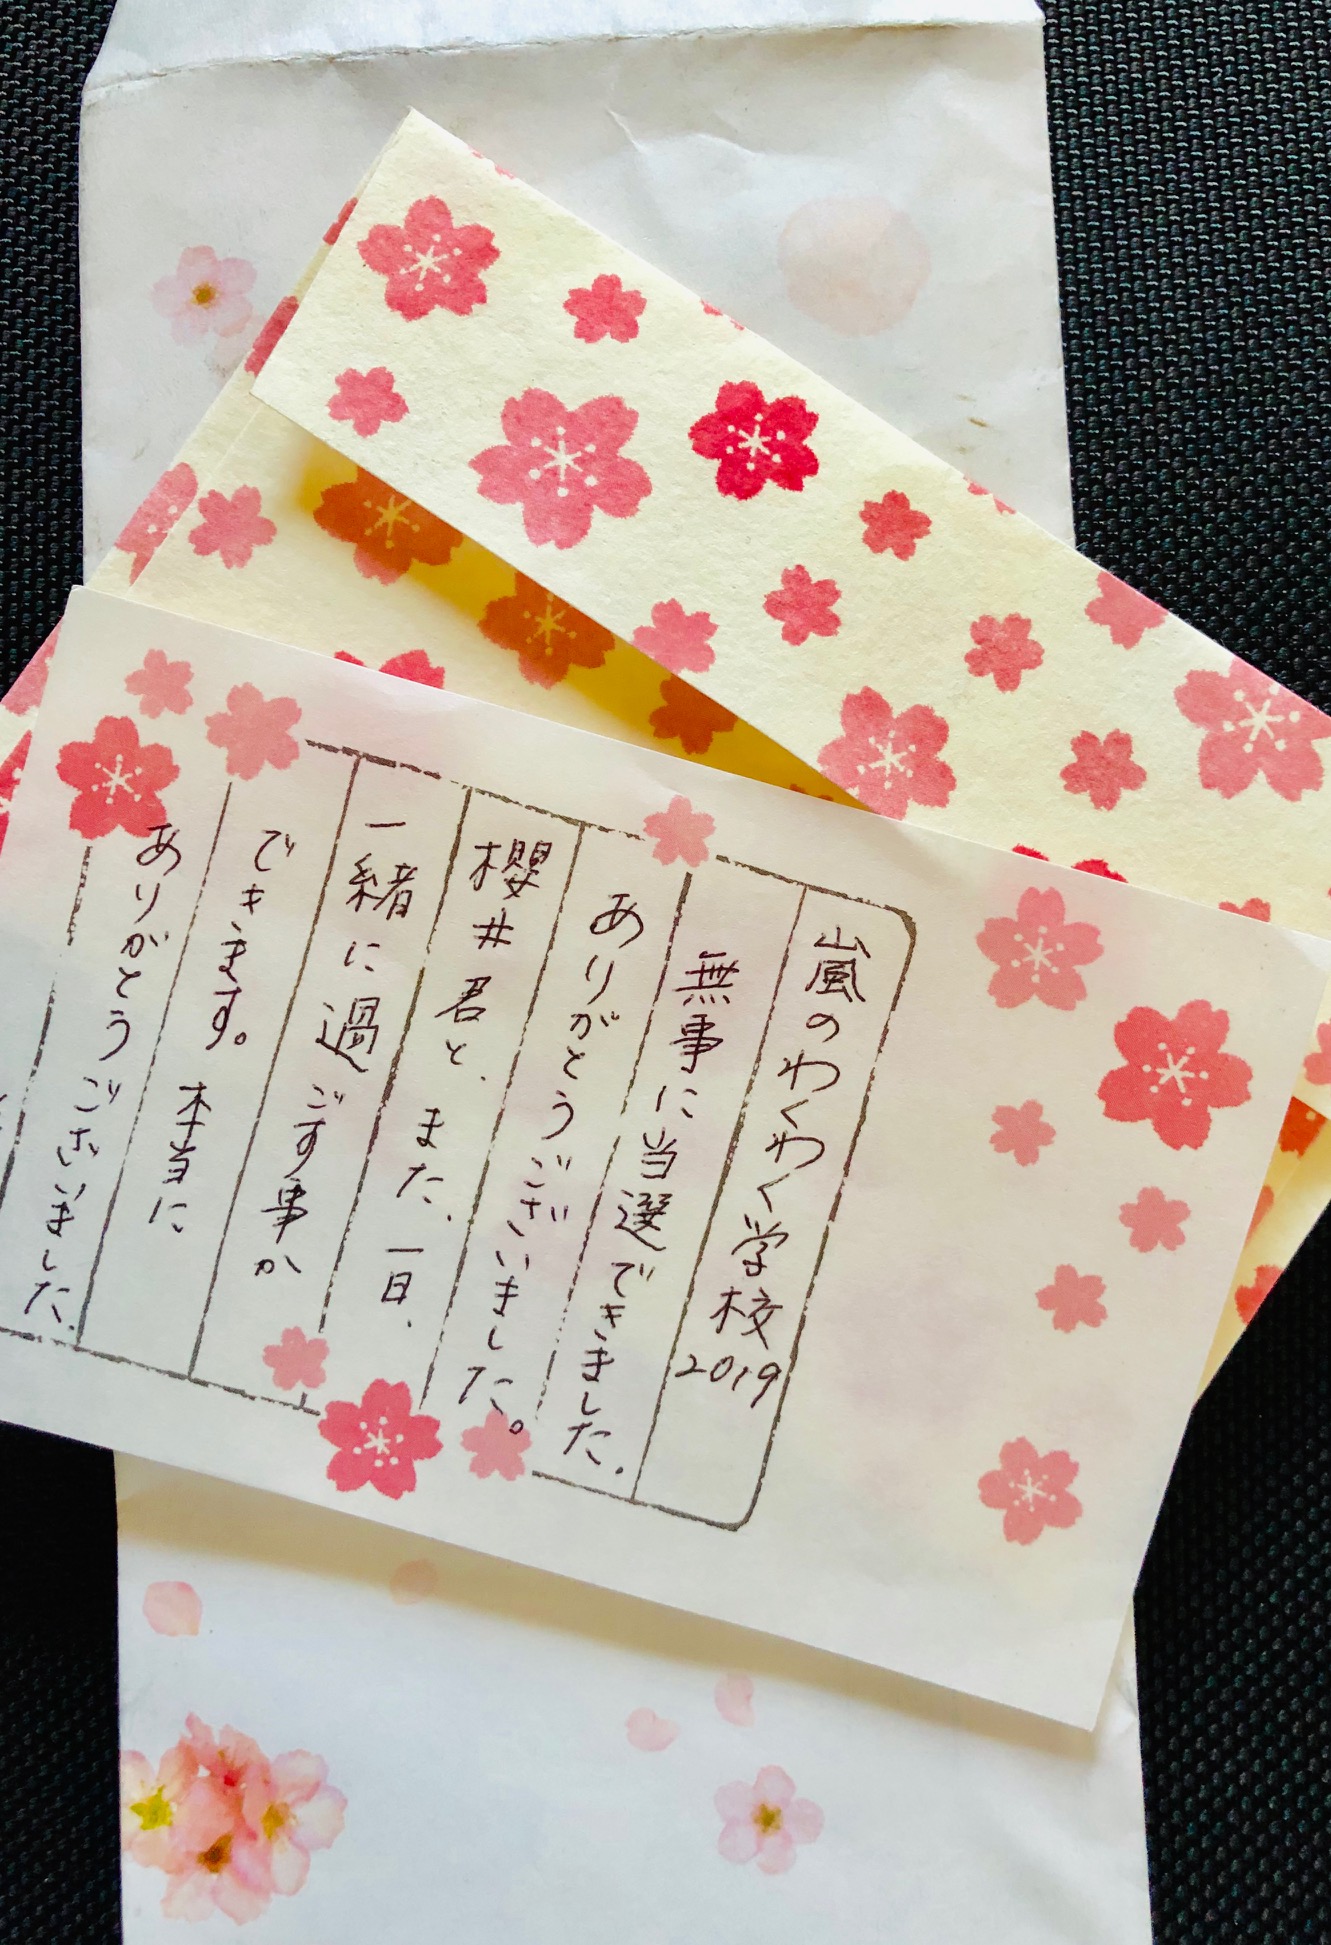 嵐のわくわく学校2019
無事に当選できました.
ありがとうございました。
櫻井君と、また、一日、
一緒に過ごす事か
できます。本当に
ありがとうございました.